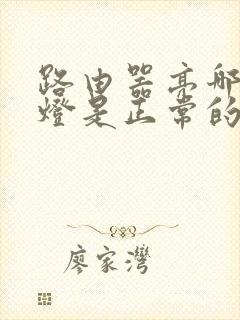 路由器亮哪
燈是正常的
廖家灣